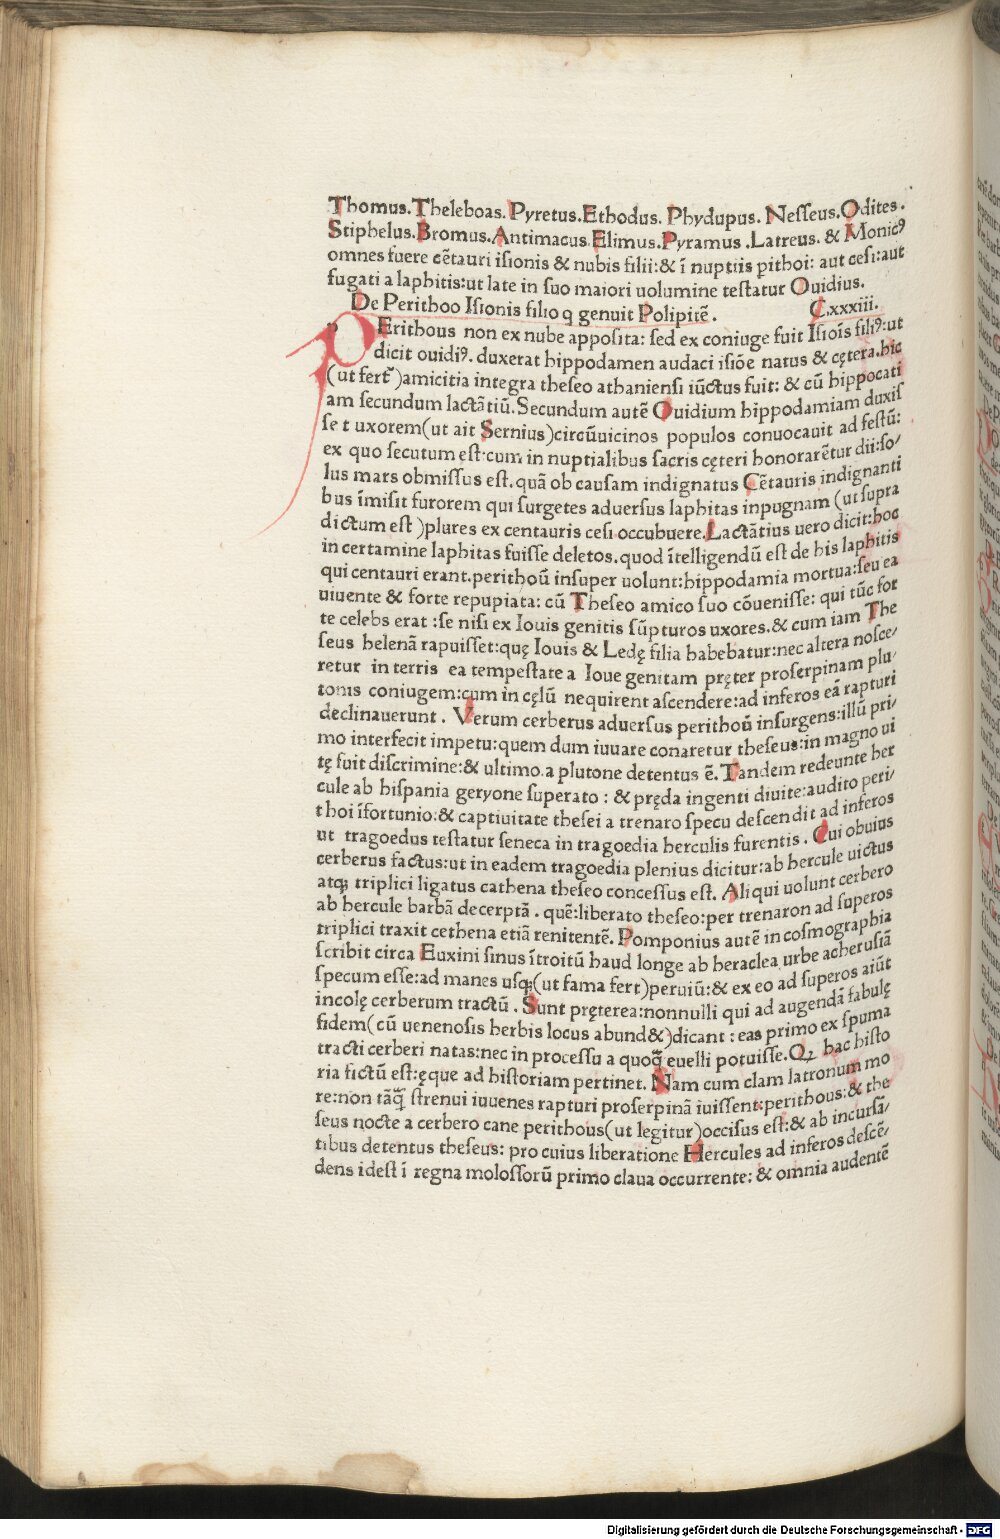 Thomus. Theleboas. Pyretus. Ethodus. Phydupus. Nesseus. Odites.
Stiphelus. Bromus. Antimacus Elimus. Pyramus. Latreus. & Monicꝰ
omnes fuere cẽtauri isionis & nubis filii: & ĩ nuptiis pithoi: aut cesi: aut
fugati a laphitis: ut late in suo maiori uolumine testatur Ouidius.
De Perithoo Isionis filio q genuit Polipitẽ. C. xxxiii.
PErithous non ex nube apposita: sed ex coniuge fuit Isiõis filiꝰ: ut
dicit ouidiꝰ. duxerat hippodamen audaci isiõe natus & cętera. hic
(ut fert᷑) amicitia integra theseo athaniensi iũctus fuit: & cũ hippocati
am secundum lactãtiũ. Secundum autẽ Ouidium hippodamiam duxis
se t uxorem (ut ait Sernius) circũuicinos populos conuocauit ad festũ:
ex quo secutum est. cum in nuptialibus sacris cęteri honorarẽtur dii: so/
lus mars obmissus est. quã ob causam indignatus Cẽtauris indignanti
bus ĩmisit furorem qui surgetes aduersus laphitas inpugnam (ut supra
dictum est) plures ex centauris cesi occubuere. Lactãtius uero dicit: hoc
in certamine laphitas fuisse deletos. quod ĩtelligendũ est de his laphitis
qui centauri erant. perithoũ insuper uolunt: hippodamia mortua: seu ea
uiuente & forte repupiata: cũ Theseo amico suo cõuenisse: qui tũc for
te celebs erat: se nisi ex Iouis genitis sũpturos uxores. & cum iam The
seus helenã rapuisset: quę Iouis & Ledę filia habebatur: nec altera nosce/
retur in terris ea tempestate a Ioue genitam pręter proserpinam plu/
tonis coniugem: cum in cęlũ nequirent ascendere: ad inferos eã rapturi
declinauerunt. Verum cerberus aduersus perithoũ insurgens: illũ pri/
mo interfecit impetu: quem dum iuuare conaretur theseus: in magno ui
tę fuit discrimine: & ultimo. a plutone detentus ẽ. Tandem redeunte her
cule ab hispania geryone superato: & pręda ingenti diuite: audito peri/
thoi ĩfortunio: & captiuitate thesei a trenaro specu descendit ad inferos
ut tragoedus testatur seneca in tragoedia herculis furentis. Cui obuius
cerberus factus: ut in eadem tragoedia plenius dicitur: ab hercule uictus
atqꝫ triplici ligatus cathena theseo concessus est. Aliqui uolunt cerbero
ab hercule barbã decerptã. quẽ: liberato theseo: per trenaron ad superos
triplici traxit cethena etiã renitentẽ. Pomponius autẽ in cosmographia
scribit circa Euxini sinus ĩtroitũ haud longe ab heraclea urbe acherusiã
specum esse: ad manes usqꝫ (ut fama fert) peruiũ: & ex eo ad superos aiũt
incolę cerberum tractũ. Sunt pręterea: nonnulli qui ad augendã fabulę
fidem (cũ uenenosis herbis locus abund&) dicant: eas primo ex spuma
tracti cerberi natas: nec in processu a quoq̃ euelli potuisse. Qꝛ hac histo
ria fictũ est: ęque ad historiam pertinet. Nam cum clam latronum mo
re: non tãq̃ strenui iuuenes rapturi proserpinã iuissent: perithous: & the
seus nocte a cerbero cane perithous (ut legitur) occisus est: & ab incursã/
tibus detentus theseus: pro cuius liberatione Hercules ad inferos descẽ/
dens idest ĩ regna molossorũ primo claua occurrente: & omnia audentẽ
Digitalisierung gefördert durch die Deutsche Forschungsgemeinschaft - DFG